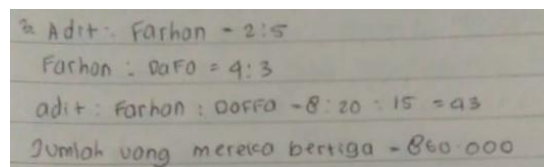 2. Adit : Farhan = 2:5
Farhan : DaFa = 4:3
adit : Farhan : DaFFa = 8 : 20 : 15 = 43
Jumlah uang mereka bertiga = 860.000